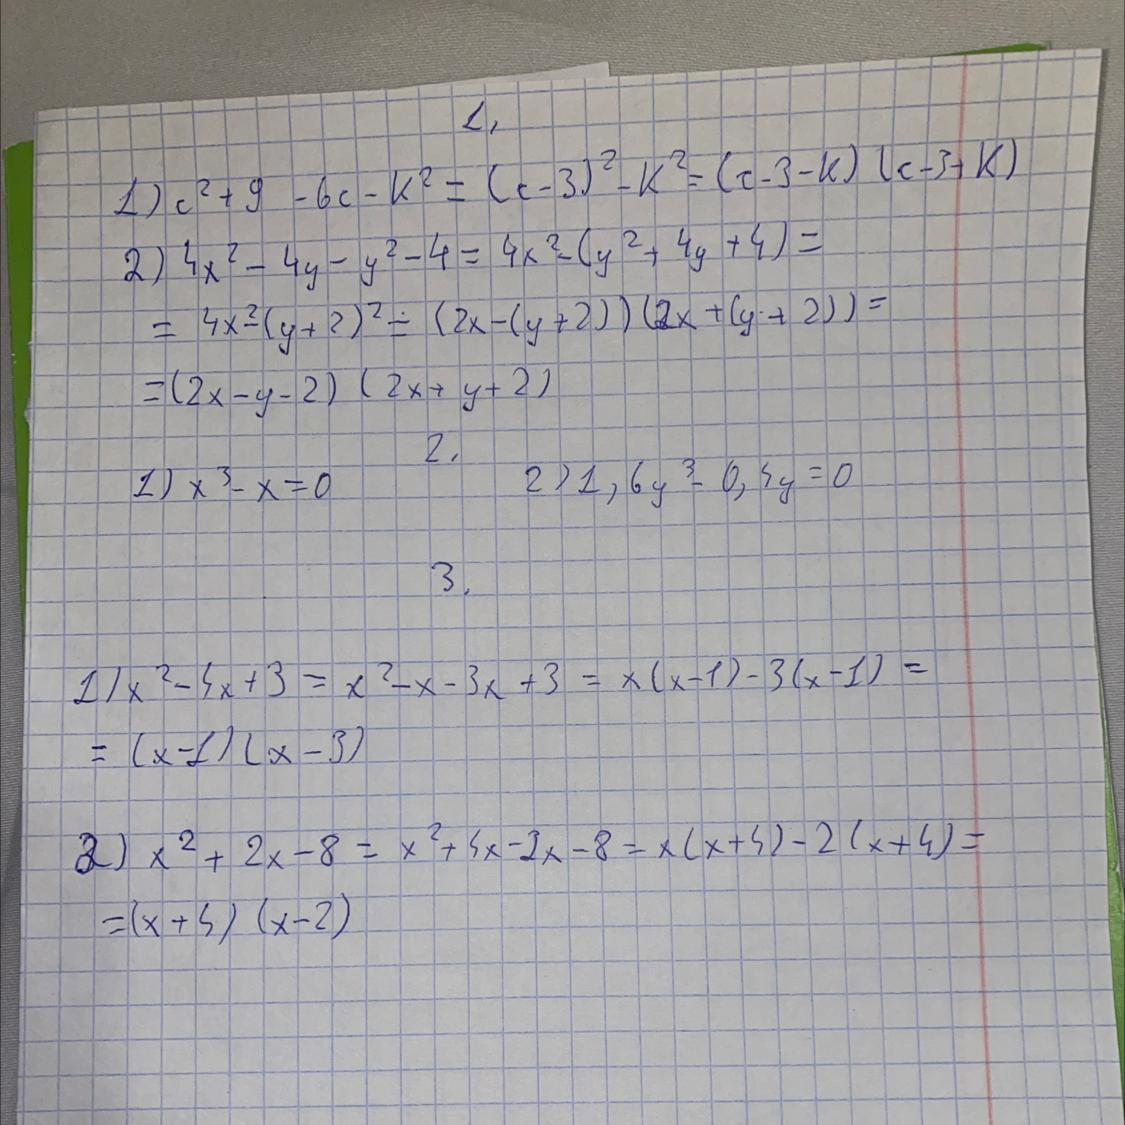 1,
1) c²+9 -6c-k²=(c-3)²-k²=(c-3-k) (c-3+k)
2) 4x²-4y-y²-4=4x²-(y²+4y+4)=
= 4x²-(y+2)²=(2x-(y+2))(2x+(y+2))=
=(2x-y-2) (2x+y+2)
2.
1) x³-x=0 2) 1,6y³-0,4y=0
3.
1) x²-4x+3 = x²-x-3x+3 = x(x-1)-3(x-1) =
= (x-1)(x-3)
2) x²+2x-8 = x²+4x-2x-8=x(x+4)-2(x+4)=
=(x+4) (x-2)